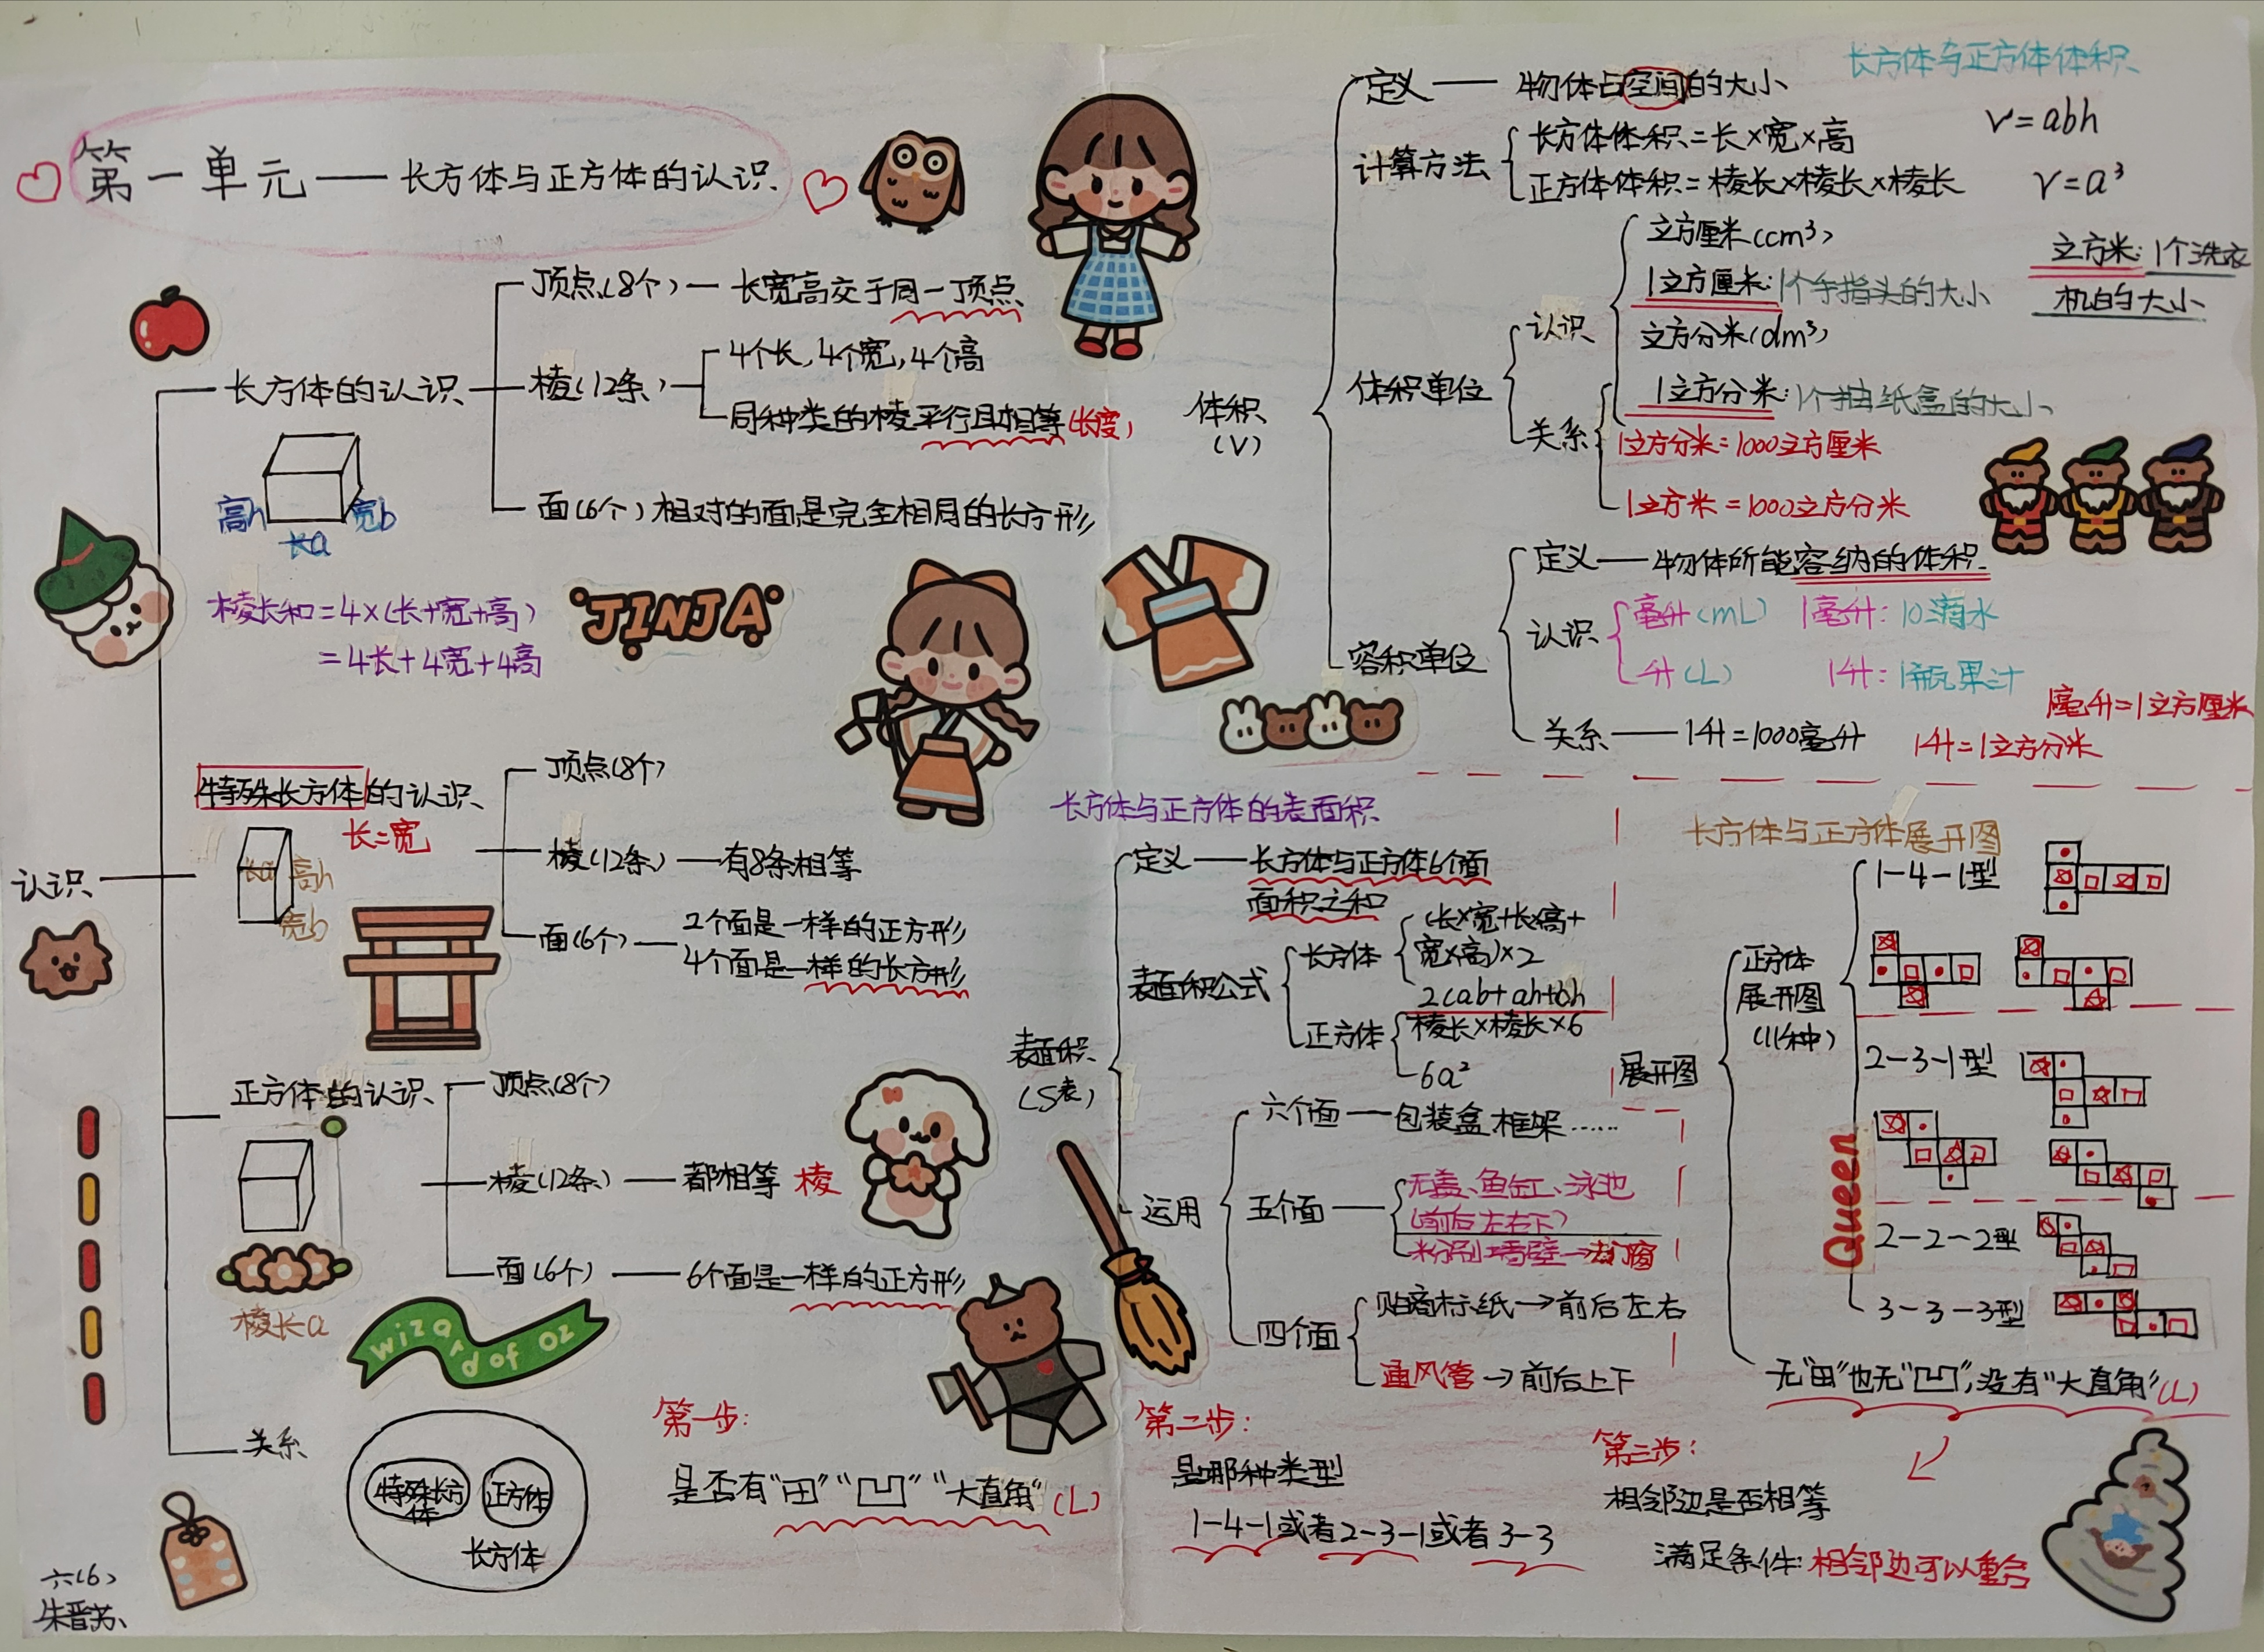 第一单元——长方体与正方体的认识
认识
长方体的认识
顶点(8个)—长宽高交于同一顶点
棱(12条)
4个长,4个宽,4个高
同种类的棱平行且相等(长度)
面(6个)相对的面是完全相同的长方形
高h
宽b
长a
棱长和=4×(长+宽+高)
=4长+4宽+4高
JINJA
特殊长方体的认识
长=宽
长a
高h
宽b
顶点(8个)
棱(12条)—有8条相等
面(6个)—2个面是一样的正方形
4个面是一样的长方形
正方体的认识
顶点(8个)
棱(12条)—都相等 棱
面(6个)—6个面是一样的正方形
棱长a
wizard of oz
关系
特殊长方体
正方体
长方体
六(6)
长方体与正方体体积
体积
(V)
定义——物体占空间的大小
计算方法
长方体体积=长×宽×高
正方体体积=棱长×棱长×棱长
v=abh
v=a³
体积单位
认识
立方厘米(cm³)
1立方厘米:1个手指头的大小
立方分米(dm³)
1立方分米:1个抽纸盒的大小
立方米:1个洗衣
机的大小
关系
1立方分米=1000立方厘米
1立方米=1000立方分米
容积单位
定义——物体所能容纳的体积
认识
毫升(mL) 1毫升:10滴水
升(L) 1升:1瓶果汁
关系——1升=1000毫升
1毫升=1立方厘米
1升=1立方分米
长方体与正方体的表面积
表面积
(S表)
定义——长方体与正方体6个面
面积之和
表面积公式
长方体
(长×宽+长×高+
宽×高)×2
2(ab+ah+bh
正方体
棱长×棱长×6
6a²
运用
六个面—包装盒、框架……
五个面
无盖、鱼缸、泳池
(前后左右下)
粉刷墙壁→去门窗
四个面
贴商标纸→前后左右
通风管→前后上下
长方体与正方体展开图
展开图
正方体
展开图
(11种)
1-4-1型
2-3-1型
2-2-2型
3-3-3型
Queen
无"田"也无"凹",没有"大直角"(L)
第一步:
是否有"田""凹""大直角"(L)
第二步:
是哪种类型
1-4-1或者2-3-1或者3-3
第三步:
相邻边是否相等
满足条件:相邻边可以重合